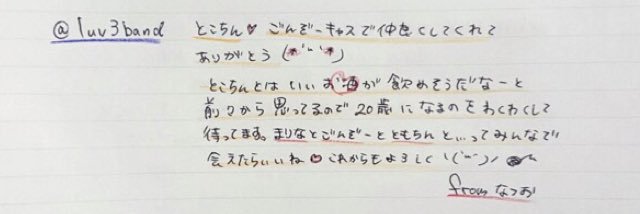 @luv3band とこちん♥ ごんぞーキャスで仲良くしてくれて
ありがとう (*´ー`*)
とこちんとはいいお酒が飲めそうだなーと
前々から思ってるので20歳になるのをわくわくして
待ってます。まりなとごんぞーとともちんと...ってみんなで
会えたらいいね♡これからもよろしく
from なつお